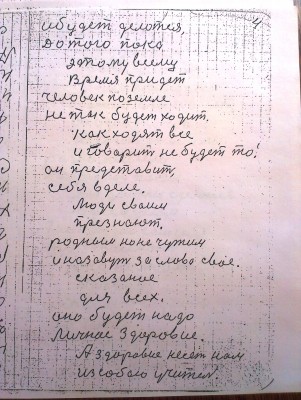 4
и будет делотся,
до того пока
этому всему
время придет
человек по земле
не так будет ходит.
как ходят все
и говорит не будет то!
он представит,
себя в деле.
Люди своим
презнают.
родным но не чужим
и назавут за слово свое.
сказаное
для всех.
оно будет надо
Личное Здоровие.
А здоровие несет нам
из собою учител